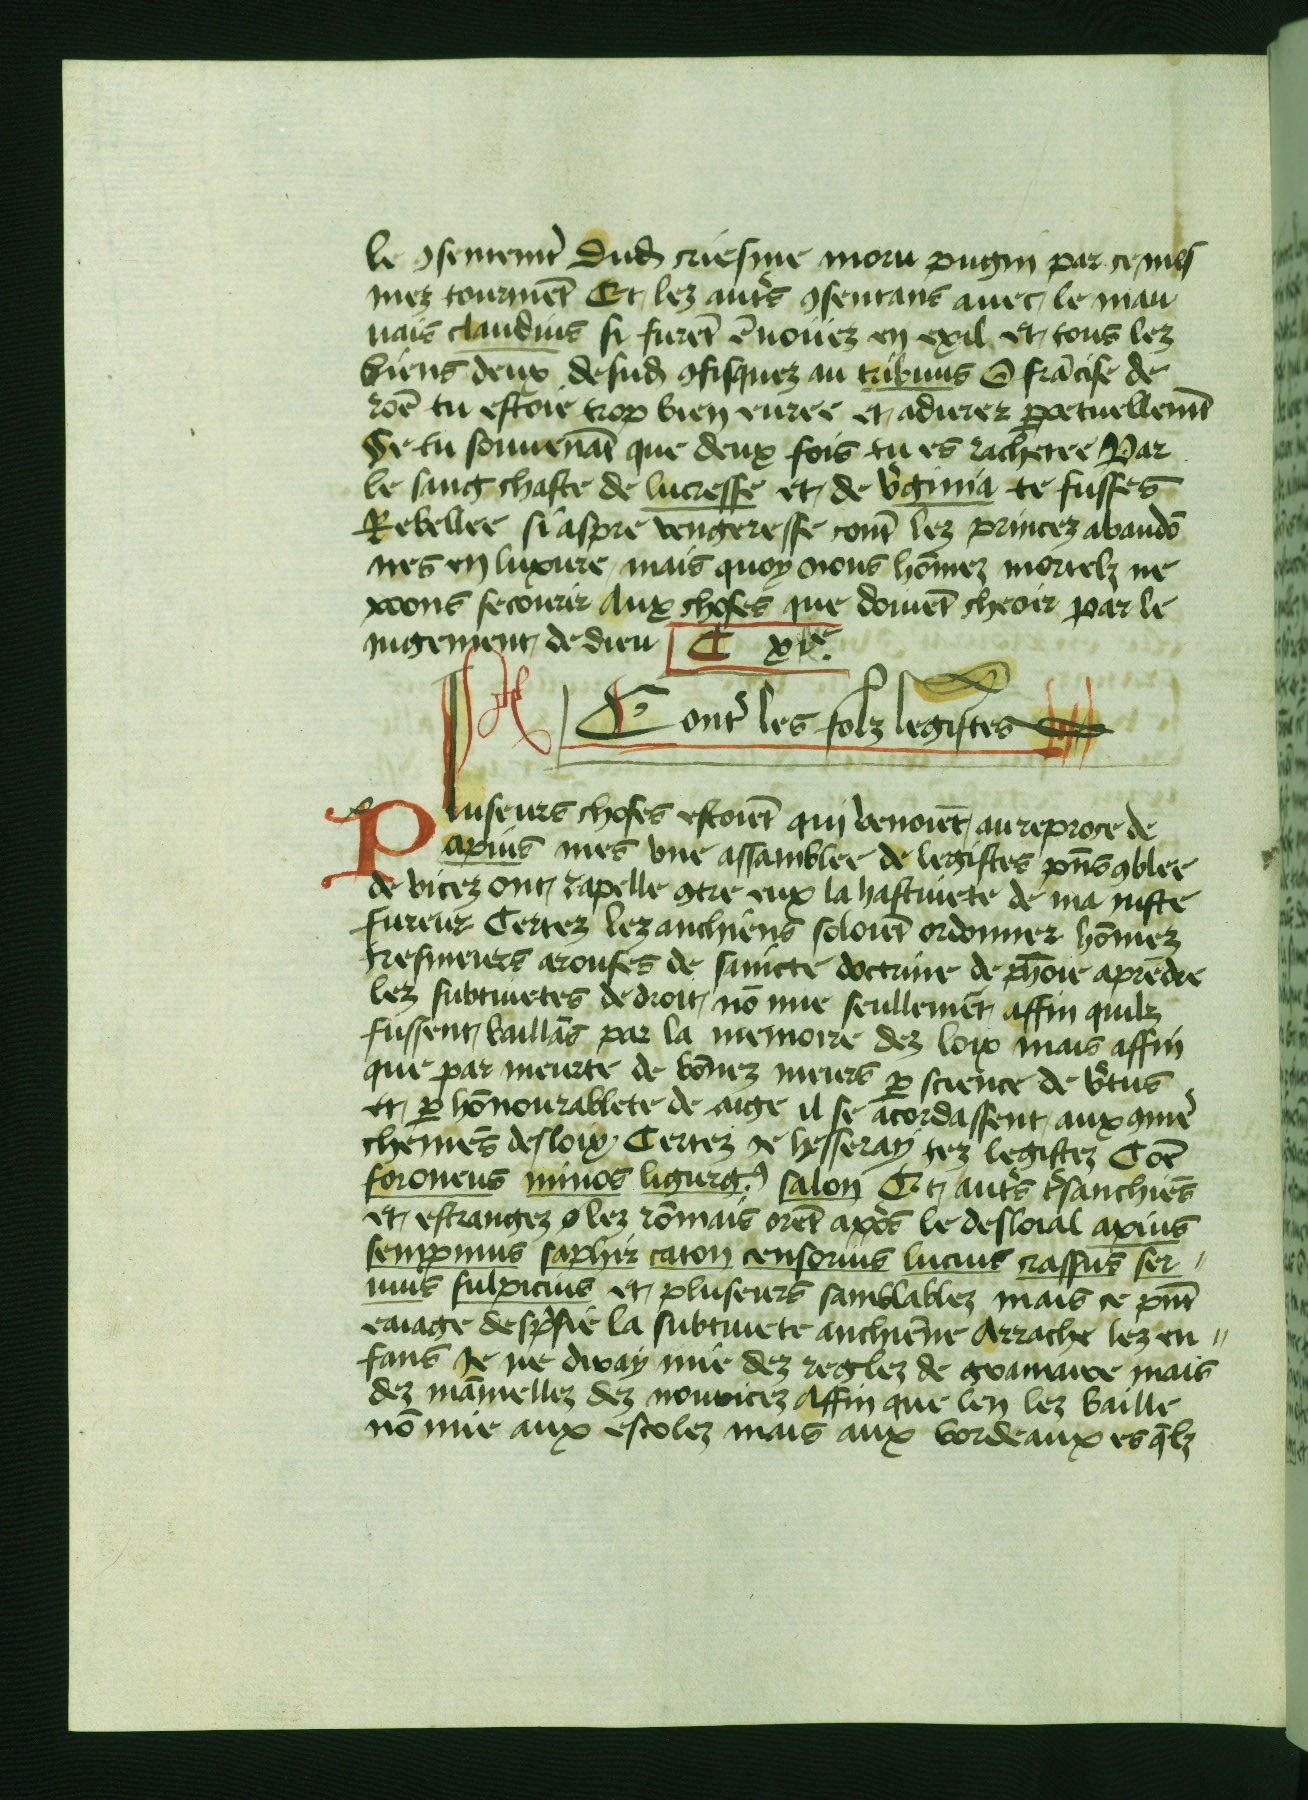 le ꝯsentemt̄ Dud criesme moru pugni par ce mes
mez tourmēt Et lez aut̄s ꝯsentans auec le mau
uais claudius si furēt ēuoiiez en exil et tous lez
biens deux desud ꝯfisquez au tribuns O frācise de
rōe tu estoie trop bien euree et a durer ꝑpetuellemt̄
Se tu souuenāt que deux fois tu es rachetee Par
le sang chaste de lucresse et de v̄ginia te fusses
Rebellee si aspre vengeresse com̄ lez princez abandō
nes en luxure mais quoy nous hōmez mortelz ne
poons secourir Aux choses que doiuēt cheoir par le
iugement de dieu C xie
Cont̄ les folz legistes
Pluseurs choses estoiēt qui venoiēt au reproce de
apius mes vne assamblee de legistes pn̄s ꝯblee
de vicez ont rapelle ꝯtre eux la hastiuete de ma iuste
fureur Certez lez anchiens soloiēt ordonner hōmez
tresmeurs arouses de saincte doctrine de ph̄oie aprēdre
lez subtiuetes de droit nō mie seullemēt affin quilz
fussent vaillās par la memoire dez loix mais affin
que par meurte de bōnez meurs ꝑ science de v̄tus
et ꝑ hōnourablete de aige il se acordassent aux ꝯmē
chemēs desloix Certez ie lesseray tez legistez Cōe
foroneus minos ligurgꝰ salon Et aut̄s t̄sanchiēs
et estrangez o lez rōmais orēt ap̄s le desloial apius
sempmus saphir caton censorius lucius crassus ser
uius sulpicius et pluseurs samblablez mais ce pn̄t
eaiage desp̄sie la subtiuete anchiēne Arrache lez en
fans Ie ne diray mie dez reglez de gramaire mais
dez māmellez dez nouricez Affin que len lez baille
nō mie aux escolez mais aux bordeaux es q̄lz